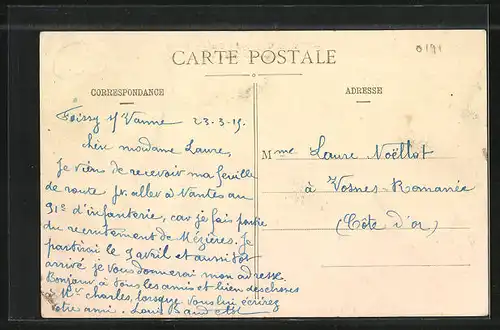 CARTE POSTALE
0191
CORRESPONDANCE
ADRESSE
Foissy s/ Vanne 23-3-15.
Chère madame Laure,
Je viens de recevoir ma feuille
de route pr. aller à Nantes au
91e d'infanterie, car je fais partie
du recrutement de Mézières. Je
partirai le 9 avril et aussitôt
arrivé je vous donnerai mon adresse.
Bonjour à tous les amis et bien des choses
à Mr Charles, lorsque vous lui écrirez
Votre ami. Louis
Mme Laure Noëllot
à Vosnes-Romanée
(Côte d'or)